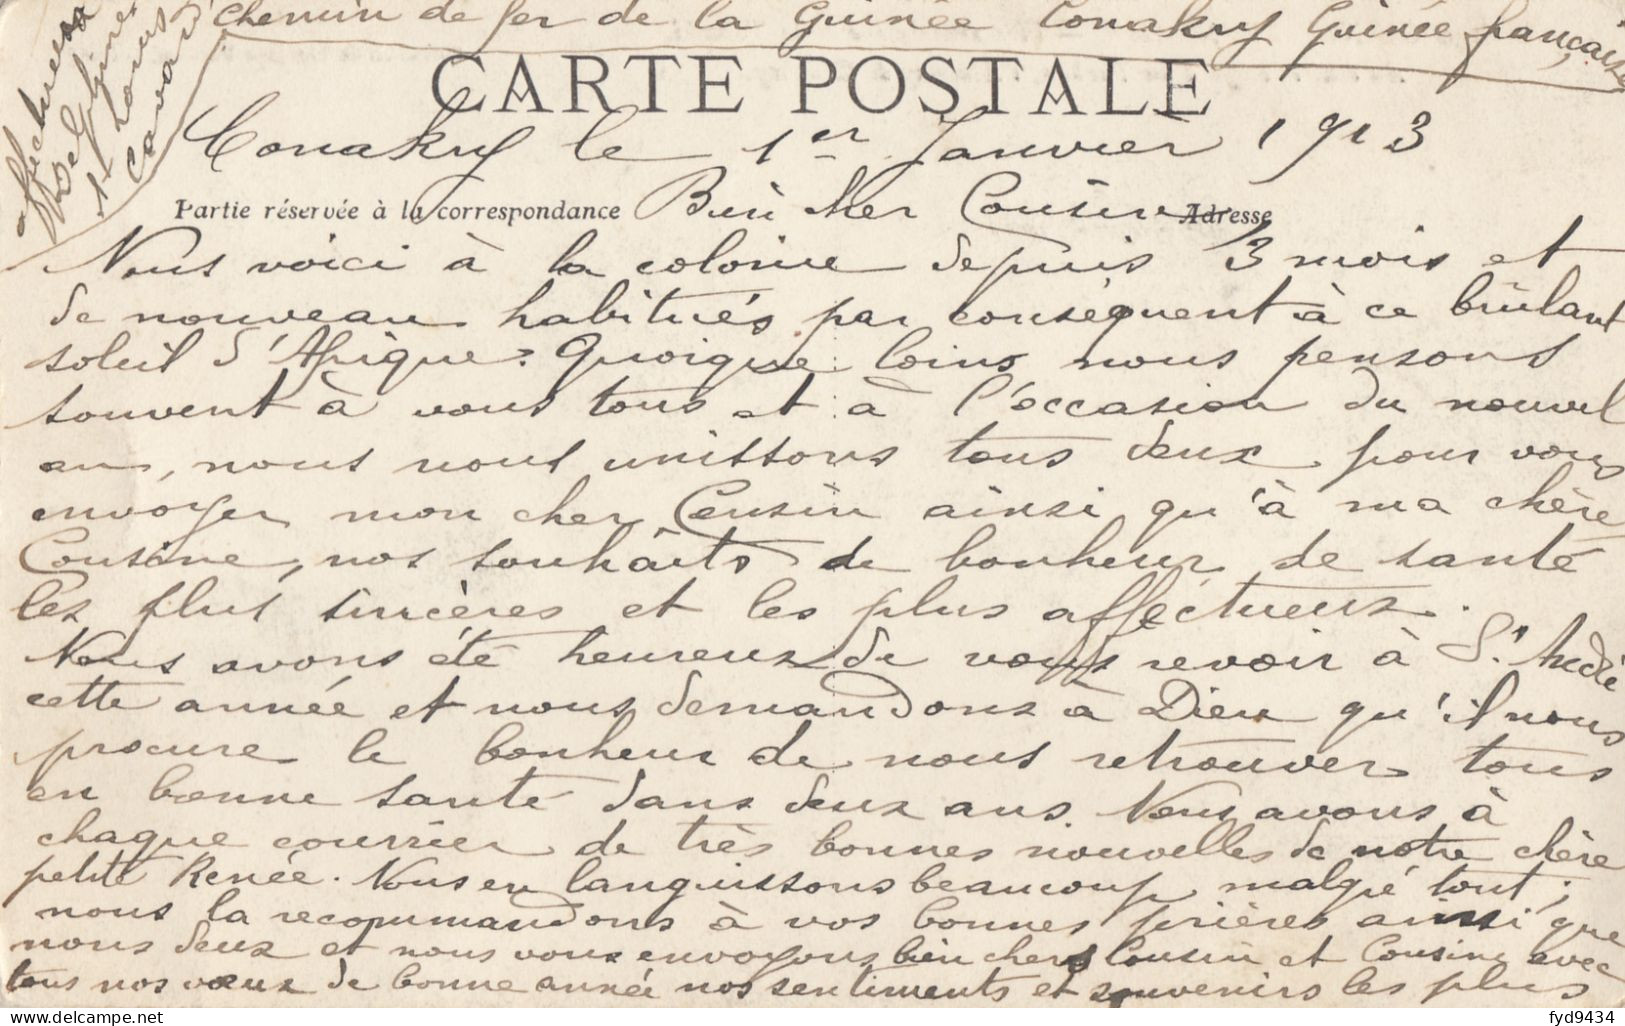 Chemin de fer de la Guinée Conakry Guinée française
CARTE POSTALE
Conakry le 1er Janvier 1913
Partie réservée à la correspondance Bien cher Cousin Adresse
Nous voici à la colonie depuis 3 mois et
de nouveau habitués par conséquent à ce brûlant
soleil d'Afrique. Quoique loins nous pensons
souvent à vous tous et à l'occasion du nouvel
an, nous nous unissons tous deux pour vous
envoyer mon cher Cousin ainsi qu'à ma chère
Cousine, nos souhaits de bonheur de santé
les plus sincères et les plus affectueux.
Nous avons été heureux de vous revoir à St
cette année et nous demandons à Dieu qu'il nous
procure le bonheur de nous retrouver tous
en bonne santé dans deux ans. Nous avons à
chaque courrier de très bonnes nouvelles de notre chère
petite Renée. Nous en languissons beaucoup malgré tout;
nous la recommandons à vos bonnes prières ainsi que
nous deux et nous vous envoyons bien chers Cousin et Cousine avec
tous nos vœux de bonne année nos sentiments et souvenirs les plus
affectueux
Delphine
Louis
fyd9434